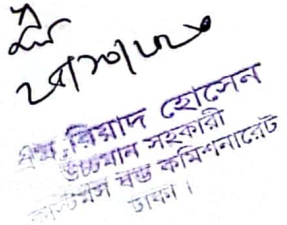 এম, রিয়াদ হোসেন
উচ্চমান সহকারী
কাস্টমস বন্ড কমিশনারেট
ঢাকা।